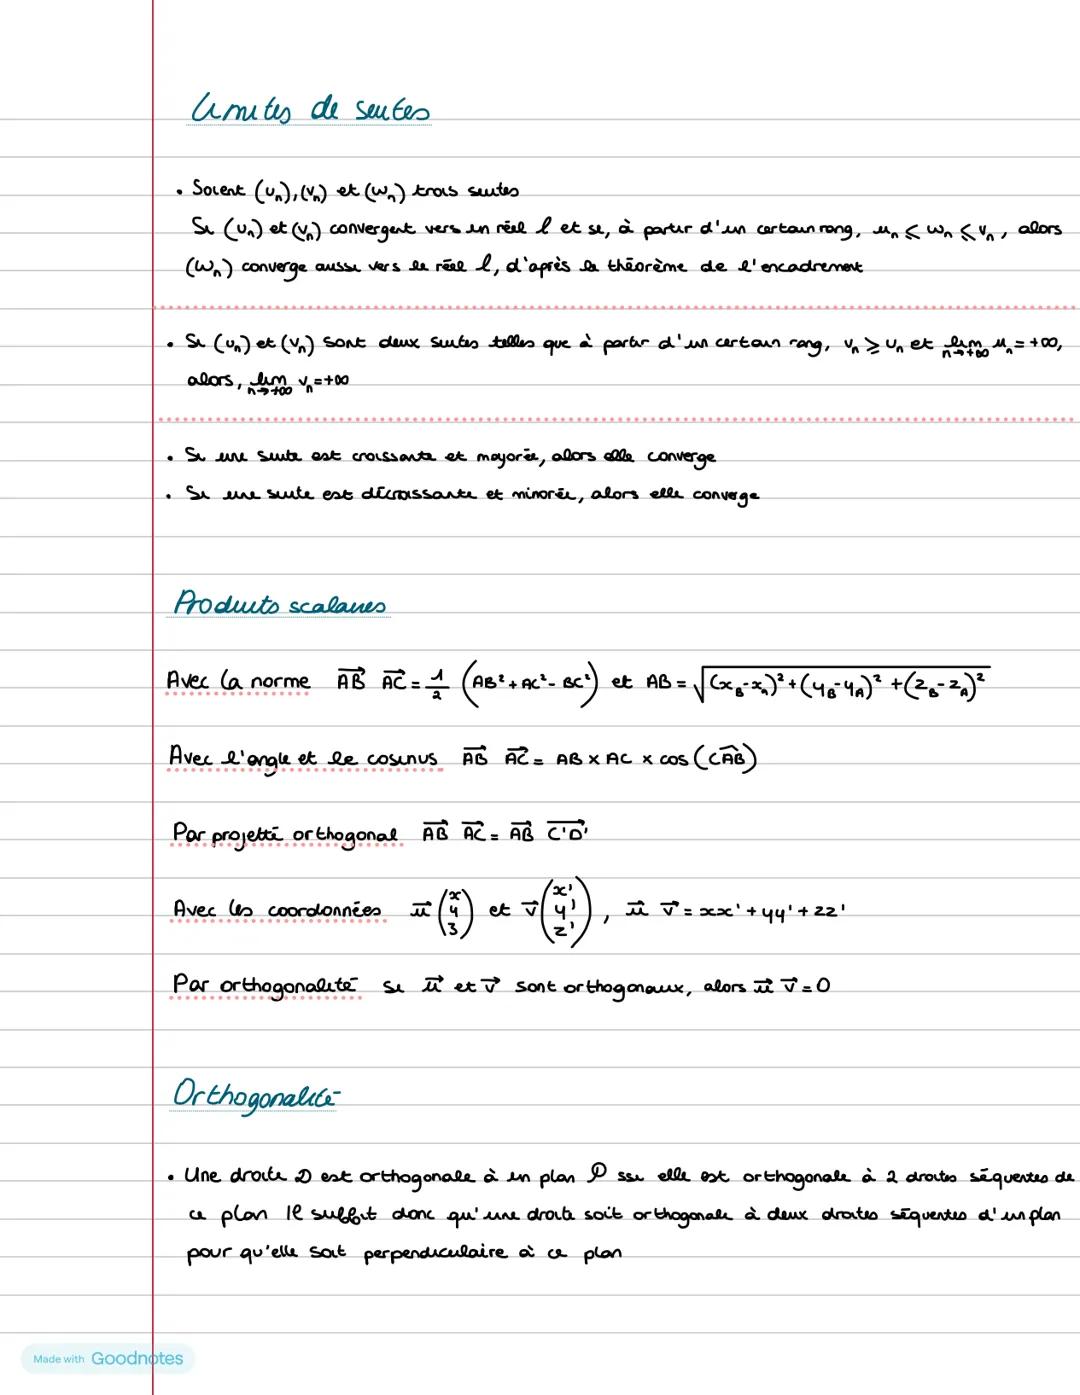 Limites de suites
• Soient (uₙ), (vₙ) et (wₙ) trois suites
Si (uₙ) et (vₙ) convergent vers un réel l et si, à partir d'un certain rang, uₙ ⩽ wₙ ⩽ vₙ, alors
(wₙ) converge aussi vers le réel l, d'après le théorème de l'encadrement
• Si (uₙ) et (vₙ) sont deux suites telles que à partir d'un certain rang, vₙ ⩾ uₙ et lim n→+∞ uₙ = +∞,
alors, lim n→+∞ vₙ = +∞
• Si une suite est croissante et majorée, alors elle converge
• Si une suite est décroissante et minorée, alors elle converge
Produits scalaires
Avec la norme AB⃗ AC⃗ = 1/2 (AB² + AC² - BC²) et AB = √((x_B - x_A)² + (y_B - y_A)² + (z_B - z_A)²)
Avec l'angle et le cosinus AB⃗ AC⃗ = AB × AC × cos (CÂB)
Par projetté orthogonal AB⃗ AC⃗ = AB⃗ C'D'⃗
Avec les coordonnées u⃗ (x y z) et v⃗ (x' y' z'), u⃗ v⃗ = xx' + yy' + zz'
Par orthogonalité si u⃗ et v⃗ sont orthogonaux, alors u⃗ v⃗ = 0
Orthogonalité
• Une droite D est orthogonale à un plan P ssi elle est orthogonale à 2 droites séquentes de
ce plan Il suffit donc qu'une droite soit orthogonale à deux droites séquentes d'un plan
pour qu'elle soit perpendiculaire à ce plan
Made with Goodnotes